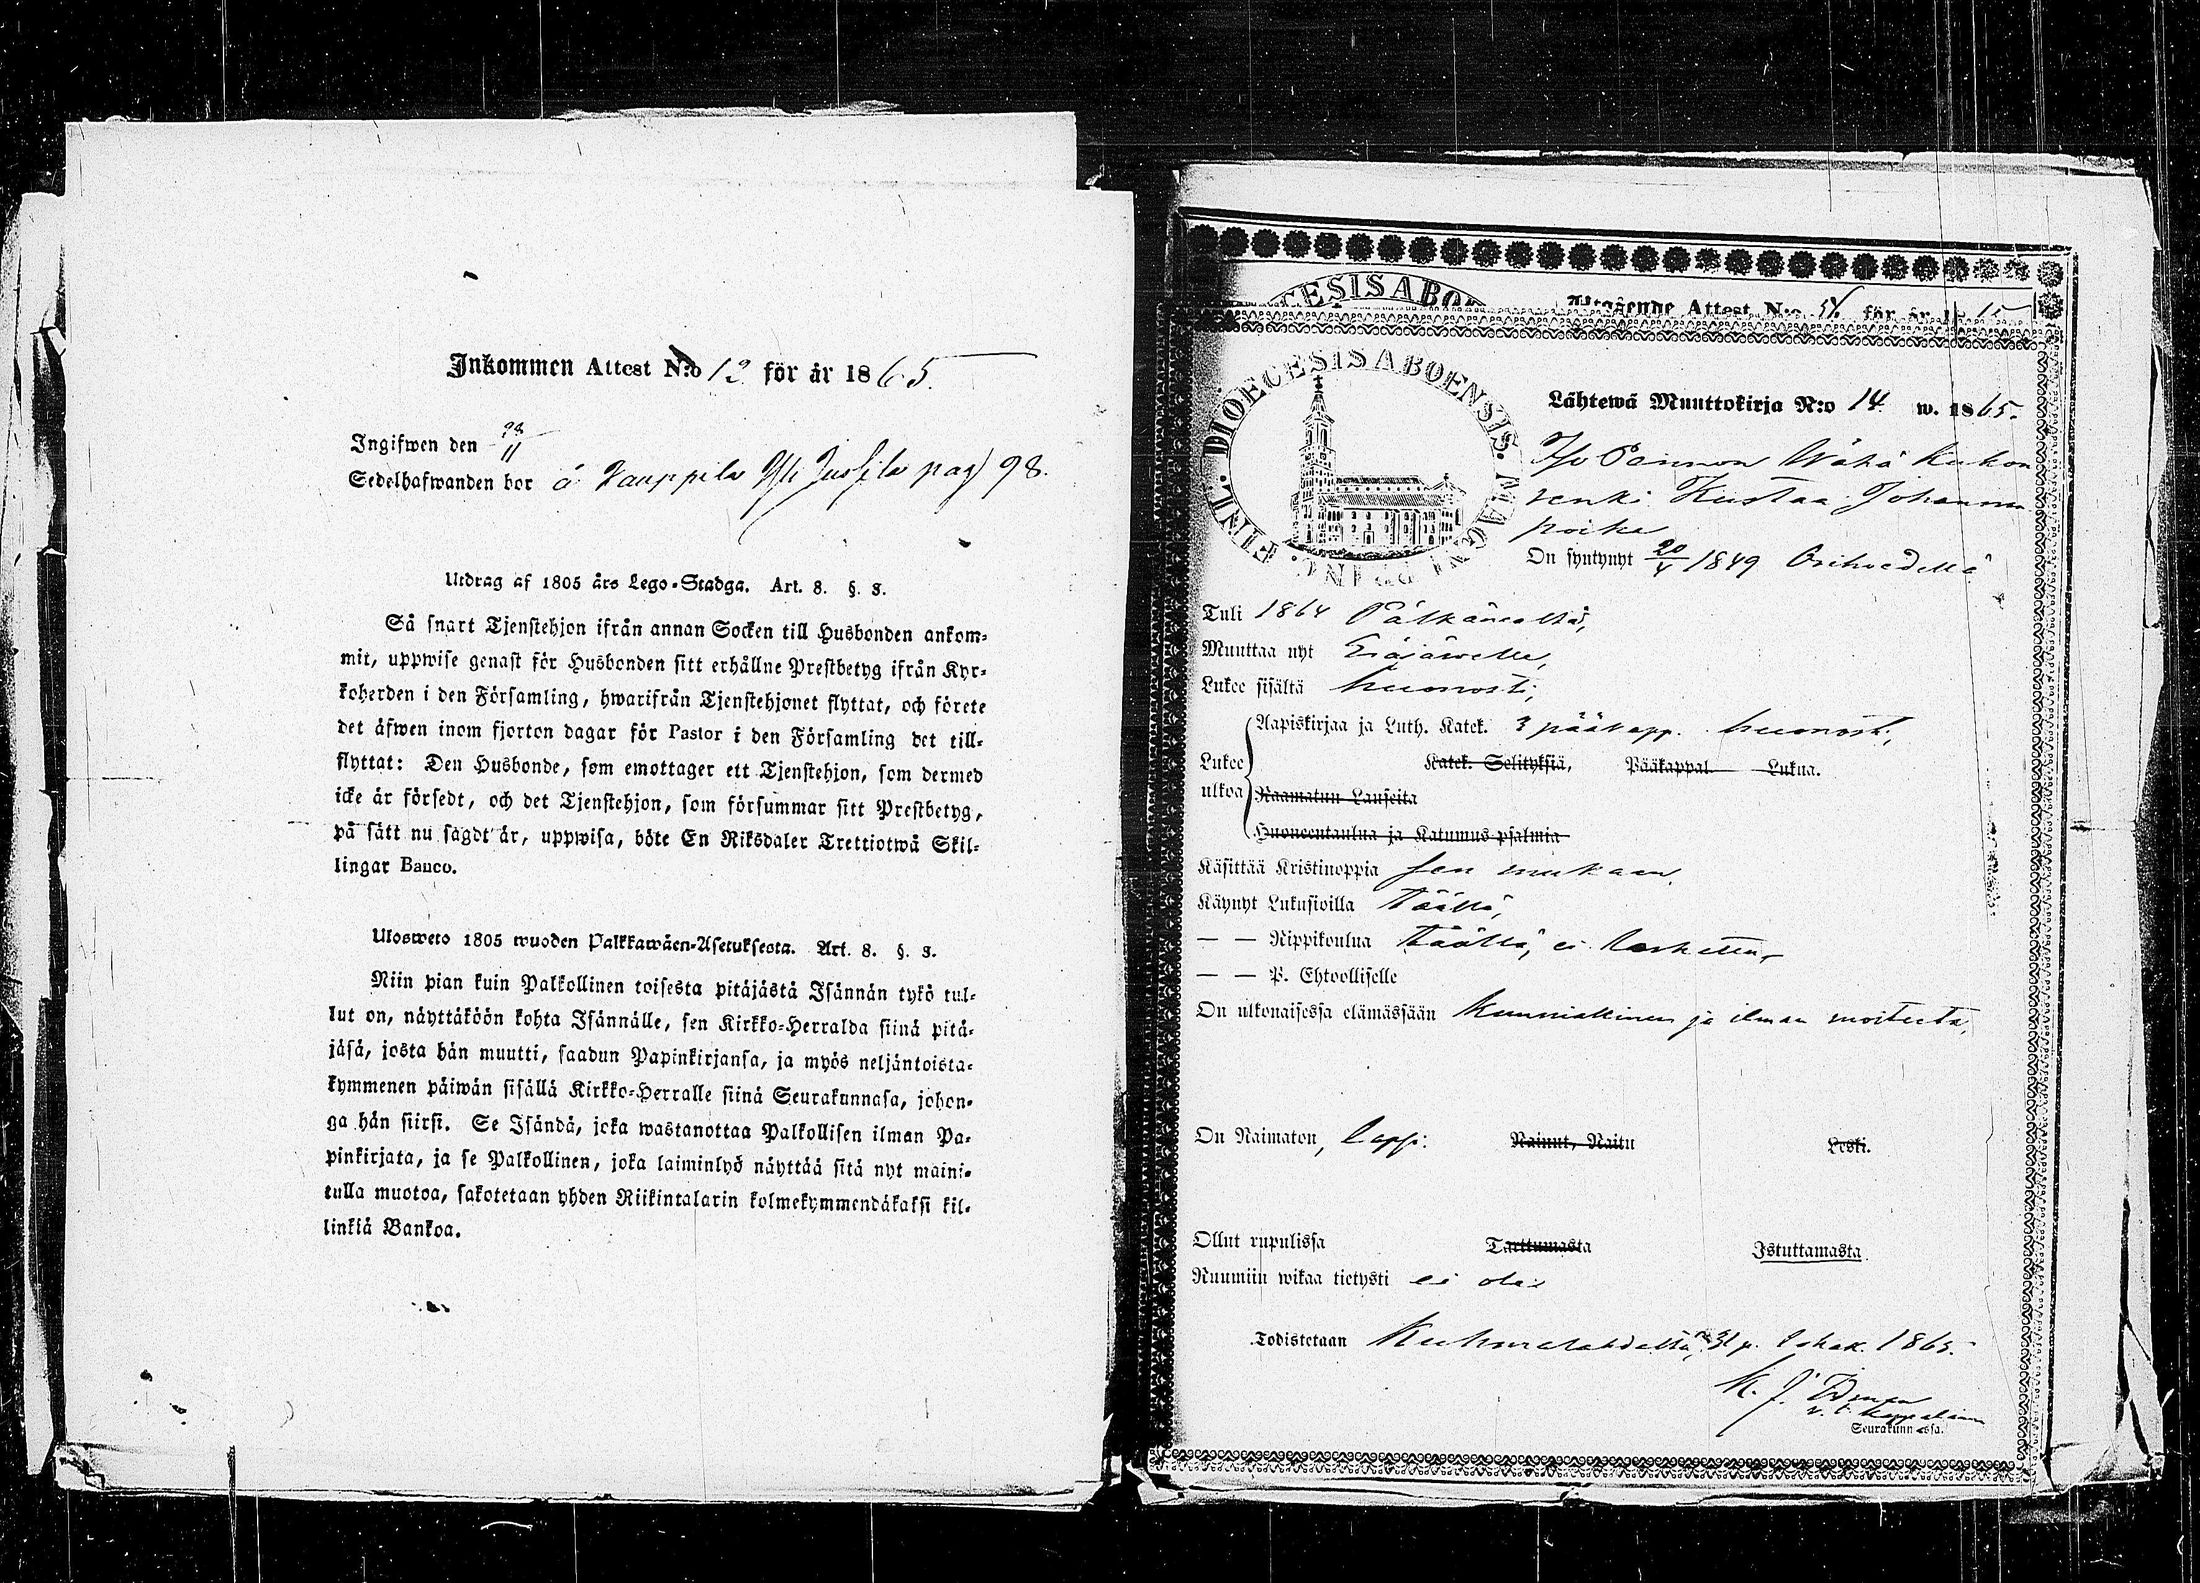 Inkommen Attest N:o 12 för år 1865.
Ingifwen den
Sedelhafwanden bor á Kauppila pag 98.
Utdrag af 1805 års Lego-Stadga. Art. 8. §. 3.
Så snart Tjenstehjon ifrån annan Socken till Husbonden ankom-
mit, uppwise genast för Husbonden sitt erhållne Prestbetyg ifrån Kyr-
koherden i den Församling, hwarifrån Tjenstehjonet flyttat, och förete
det äfwen inom fjorton dagar för Pastor i den Församling det till-
flyttat: Den Husbonde, som emottager ett Tjenstehjon, som dermed
icke är försedt, och det Tjenstehjon, som försummar sitt Prestbetyg,
på sätt nu sagdt är, uppwisa, böte En Riksdaler Trettiotwå Skil-
lingar Banco.
Ulosweto 1805 wuoden Palkkawäen-Asetuksesta. Art. 8. §. 3.
Niin pian kuin Palkollinen toisesta pitäjästä Isännän tykö tul-
lut on, näyttäköön kohta Isännälle, sen Kirkko-Herralda siinä pitä-
jäsä, josta hän muutti, saadun Papinkirjansa, ja myös neljäntoista-
kymmenen päiwän sisällä Kirkko-Herralle siinä Seurakunnasa, johon-
ga hän siirsi. Se Isändä, joka wastanottaa Palkollisen ilman Pa-
pinkirjata, ja se Palkollinen, joka laiminlyö näyttää sitä nyt maini-
tulla muotoa, sakotetaan yhden Riikintalarin kolmekymmendäkaksi kil-
linkiä Bankoa.
CESIS ABO
Utgående Attest N:o för år
FINL. DIOECESIS ABOENSIS. MAGN. PRINC.
Lähtewä Muuttokirja N:o 14 w. 1865.
Wähä Kukon
renki Kustaa Johannen
poika
On syntynyt 20/4 1849 Orihwedellä
Tuli 1864 Pälkäneeltä,
Muuttaa nyt Eräjärwelle,
Lukee sisältä huonosti,
Aapiskirjaa ja Luth. Katek. 3 pääkapp. huonosti,
Lukee
ulkoa
Katek. Selityksiä, Pääkappal. Lukua.
Raamatun Lauseita
Huoneentaulua ja Katumus-psalmia
Käsittää Kristinoppia sen mukaan.
Käynyt Lukusioilla täällä,
— — Rippikoulua täällä, ei laskettu
— — P. Ehtoolliselle
On ulkonaisessa elämässään kunniallinen ja ilman moitteeta.
On Naimaton, lapsi: Nainut, Naitu Leski.
Ollut rupulissa Tarttumasta Istuttamasta.
Ruumiin wikaa tietysti ei ole
Todistetaan Kuhmalahdella, 31 p. lokak. 1865.
K. J.
v. t. kappalainen
Seurakunnassa.